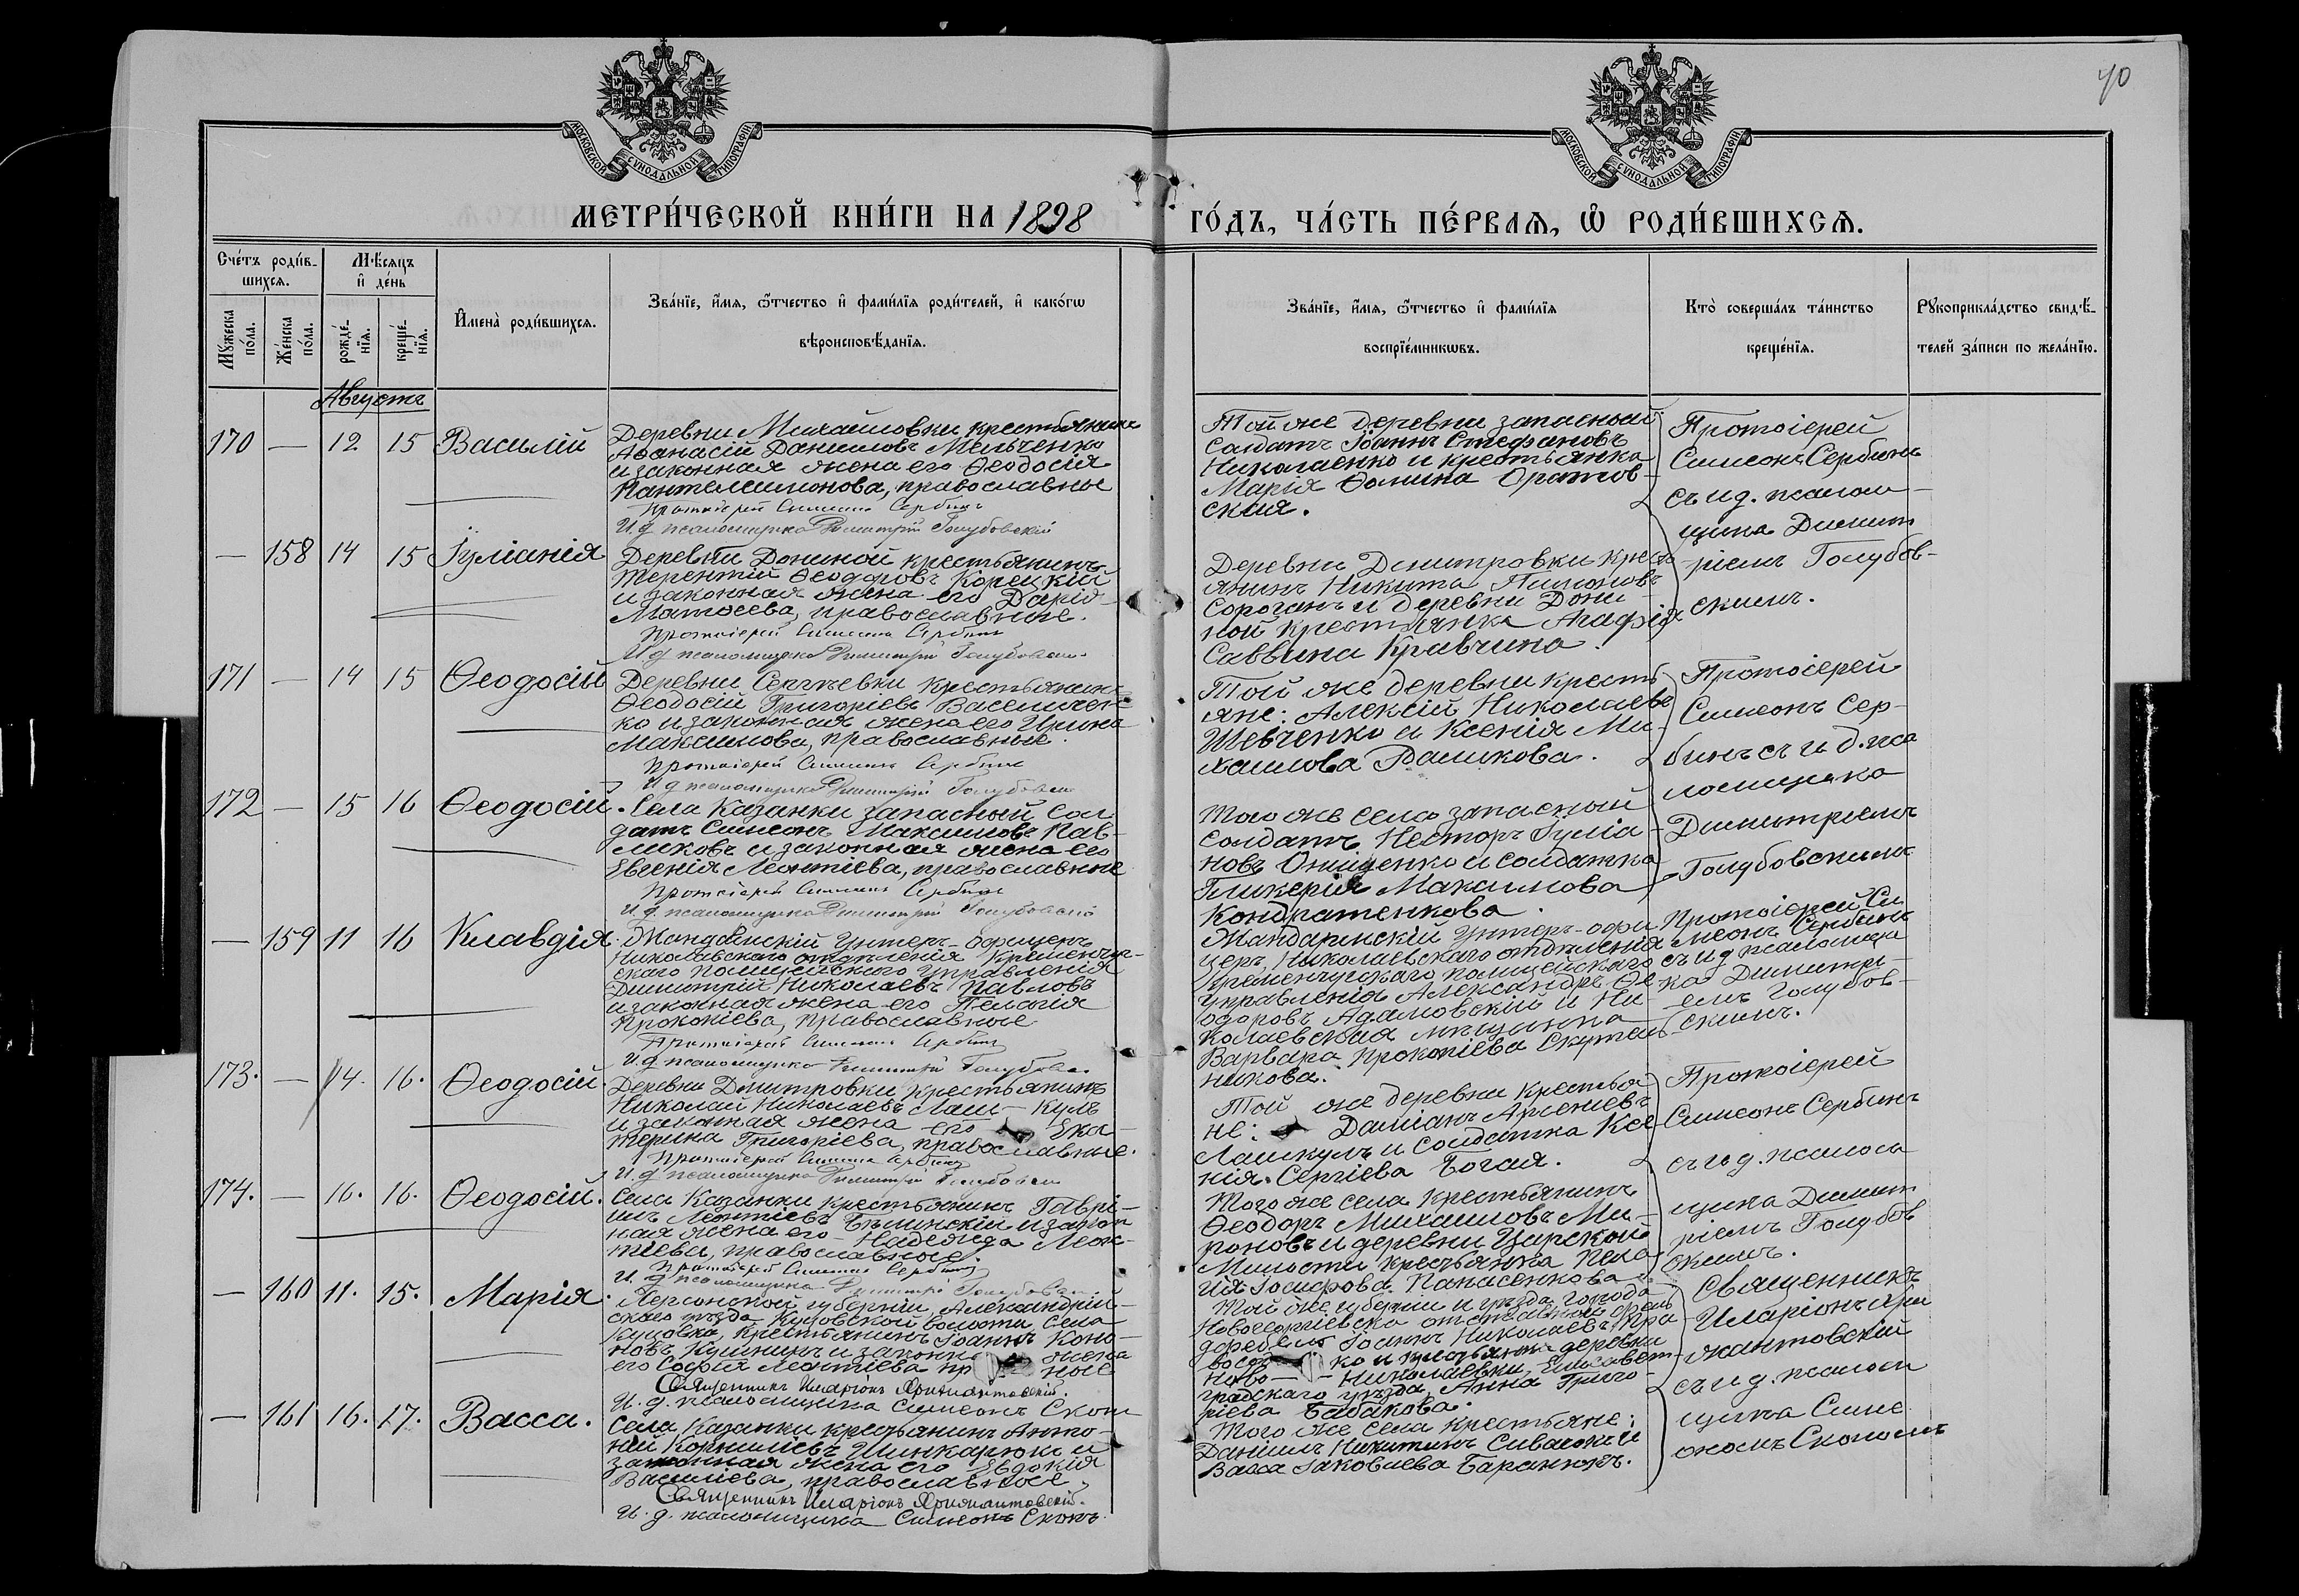 40
МОСКОВСКОЙ СѴНОДАЛЬНОЙ ТИПОГРАФІИ
МОСКОВСКОЙ СѴНОДАЛЬНОЙ ТИПОГРАФІИ
МЕТРИ́ЧЕСКОЙ КНИ́ГИ НА 1898
ГО́ДЪ, ЧА́СТЬ ПЕ́РВАѦ, Ѽ РОДИ́ВШИХСѦ.
Сче́тъ роди́в-
шихсѧ.
Мꙋ́жеска по́ла.
Же́нска по́ла.
Мѣ́сяцъ
и҆ де́нь
рожде́-
нїѧ.
креще́-
нїѧ.
И҆мена̀ роди́вшихсѧ.
Зва́нїе, и҆́мѧ, ѻ҆́тчество и҆ фами́лїѧ роди́телей, и҆ како́гѡ
вѣроисповѣ́данїѧ.
Зва́нїе, и҆́мѧ, ѻ҆́тчество и҆ фами́лїѧ
воспрїе́мникѡвъ.
Кто̀ соверша́лъ та́инство
креще́нїѧ.
Рꙋкоприкла́дство свидѣ́-
телей за́писи по жела́нїю.
Августъ
170 — 12 15 Василій
Деревни Михайловки крестьянинъ
Аѳанасій Даниловъ Мельченко
и законная жена его Ѳеодосія
Пантелимонова, православные
Протоіерей Симеонъ Сербинъ
И. д. псаломщика Димитрій Голубовскій
Той же деревни запасный
солдатъ Іоаннъ Стефановъ
Николаенко и крестьянка
Марія Ѳомина Оратов-
ская.
Протоіерей
Симеонъ Сербинъ
съ и д. псалом-
щика Димит
ріемъ Голубов-
скимъ.
— 158 14 15 Іуліанія
Деревни Дониной крестьянинъ
Терентій Ѳеодоровъ Корецкій
и законная жена его Дарія
Матѳеева, православные.
Протоіерей Симеонъ Сербинъ
И. д. псаломщика Димитрій Голубовскій
Деревни Димитровки кресть
янинъ Никита
Сороганъ и деревни Дони-
ной крестьянка Агафія
Саввина Кравчина.
171 — 14 15 Ѳеодосій
Деревни Сергѣевки крестьянинъ
Ѳеодосій Григоріевъ Василичен-
ко и законная жена его Ирина
Максимова, православные.
Протоіерей Симеонъ Сербинъ
И д псаломщика Димитрій Голубовскій
Той же деревни кресть
яне: Алексій Николаевъ
Шевченко и Ксенія Ми-
хаилова Рашкова.
Протоіерей
Симеонъ Сер-
бинъ съ и д. пса
ломщика
Димитріемъ
Голубовскимъ
172 — 15 16 Ѳеодосій.
Села Казанки запасный сол
датъ Симеонъ Максимовъ Пав-
ликовъ и законная жена его
Евгенія Леонтіева, православные
Протоіерей Симеонъ Сербинъ
И. д. псаломщика Димитрій Голубовскій
Того же села запасный
солдатъ Несторъ Іуліа-
новъ Онищенко и солдатка
Гликерія Максимова
Кондратенкова.
— 159 11 16 Клавдія.
Жандармскій Унтеръ-офицеръ
Николаевскаго отдѣленія Кременчуг-
скаго полицейскаго управленія
Димитрій Николаевъ Павловъ
и законная жена его Пелагія
Прокопіева, православные
Протоіерей Симеонъ Сербинъ
И д псаломщика Димитрій Голубовскій
Жандармскій Унтеръ-офи
церъ Николаевскаго отдѣленія
Кременчугскаго полицейскаго
управленія Александръ Ѳе-
одоровъ Адамовскій и Ни-
колаевская мѣщанка
Варвара Прокопіева
никова.
Протоіерей Си
меонъ Сербинъ
съ и д псаломщи
ка Димитрі-
емъ Голубов-
скимъ.
173. — 14. 16. Ѳеодосій.
Деревни Димитровки крестьянинъ
Николай Николаевъ Лаш-кулъ
и законная жена его Ека-
терина Григоріева, православные.
Протоіерей Симеонъ Сербинъ
И. д псаломщика Димитрій Голубовскій
Той же деревни крестья
не: Даміанъ Арсеніевъ
Лашкулъ и солдатка Ксе-
нія Сергіева Богая.
Протоіерей
Симеонъ Сербинъ
съ и д. псалом
щика Димит
ріемъ Голубов
скимъ.
174. — 16. 16. Ѳеодосій.
Села Казанки крестьянинъ Гаврі-
илъ Леонтіевъ Бѣлинскій и закон
ная жена его Надежда Леон-
тіева, православные
Протоіерей Симеонъ Сербинъ
И. д псаломщика Димитрій Голубовскій
Того же села крестьянинъ
Ѳеодоръ Михаиловъ Ми-
роновъ и деревни Царской
Милости крестьянка Пела-
гія Іосифова Панасенкова
— 160 11. 15. Марія.
Херсонской губерніи, Александрій-
скаго уѣзда Куцовской волости, села
Куцовка, крестьянинъ Іоаннъ Коно-
новъ Кушниръ и законная жена
его Софія Леонтіева пр ные
Священникъ Иларіонъ Яржантовскій.
И. д. псаломщика Симеонъ Скокъ
Той же губерніи и уѣзда города
Новогеоргіевска отставной
Іоаннъ Николаевъ
ко и крестьянка деревни
Ново - Николаевки, Елисавет-
градскаго уѣзда, Анна Григо-
ріева Бабакова.
Священникъ
Иларіонъ Яри
жантовскій
съ и д. псалом
щика Симе
ономъ Скокомъ
— 161 16. 17. Васса.
Села Казанки крестьянинъ Анто-
ній Корниліевъ Шинкарюкъ и
законная жена его Евдокія
Василіева, православные.
Священникъ Иларіонъ Яржантовскій.
И. д. псаломщика Симеонъ Скокъ.
Того же села крестьяне:
Даніилъ Никитинъ Сивачокъ и
Васса Іаковлева Баранюкъ.